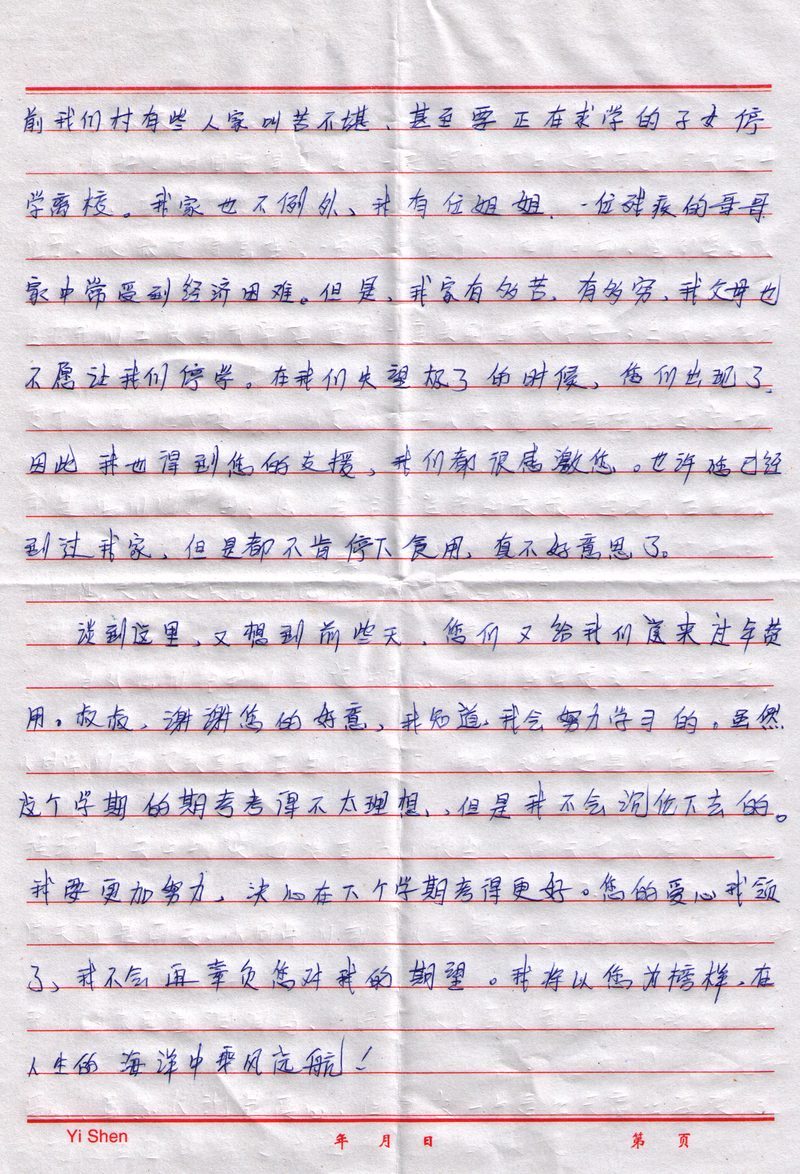 前我们村有些人家叫苦不堪、甚至要正在求学的子女停
学离校。我家也不例外、我有位姐姐、一位残疾的哥哥
家中常受到经济困难。但是、我家有多苦、有多穷、我父母也
不愿让我们停学。在我们失望极了的时候、您们出现了、
因此我也得到您的支援、我们都很感激您。也许您已经
到过我家、但是都不肯停下食用、真不好意思了。
谈到这里、又想到前些天、您们又给我们寄来过年费
用。叔叔、谢谢您的好意、我知道、我会努力学习的。虽然
这个学期的期考考得不太理想、但是我不会沉伦下去的。
我要更加努力、决心在下个学期考得更好。您的爱心我领
了、我不会再辜负您对我的期望。我将以您为榜样、在
人生的海洋中乘风远航！
Yi Shen 年 月 日 第 页